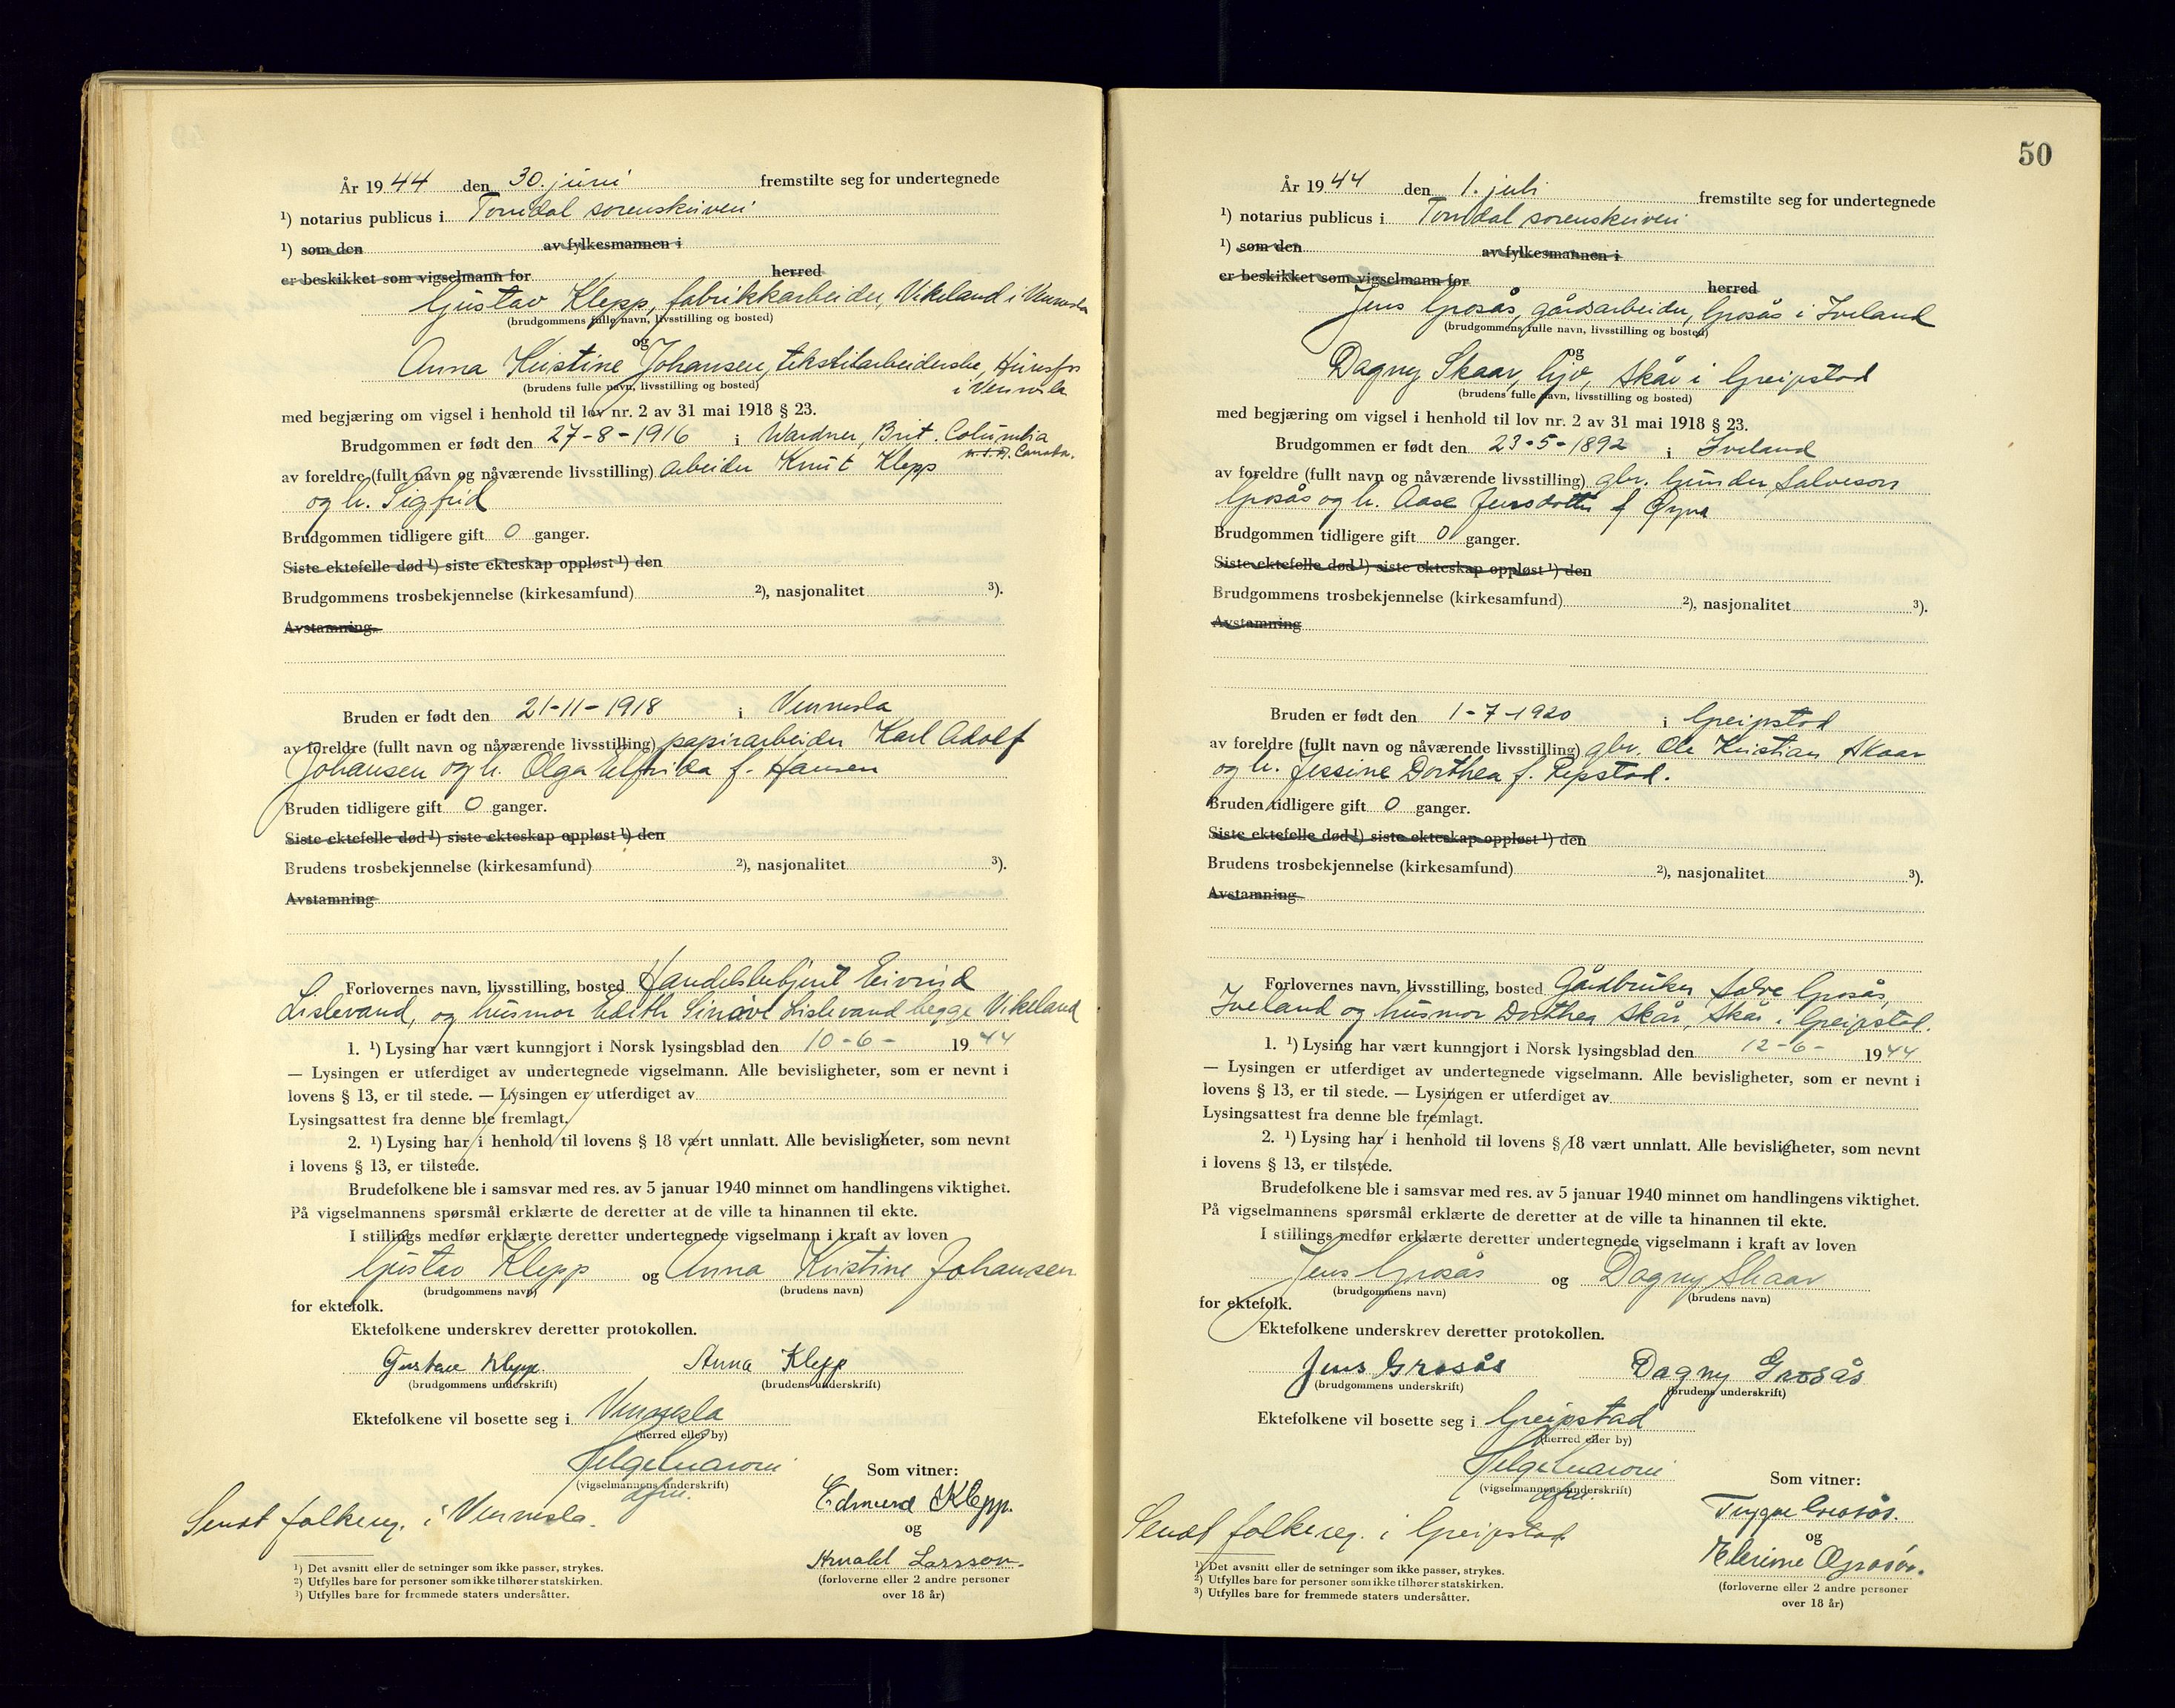 År 1944 den 30. juni fremstilte seg for undertegnede
¹) notarius publicus i Torridal sorenskriveri
¹) som den av fylkesmannen i
er beskikket som vigselmann for herred
Gustav Klepp, fabrikkarbeider, Vikeland i Vennesla
(brudgommens fulle navn, livsstilling og bosted)
og
Anna Kristine Johansen, tekstilarbeiderske, Hunsfos
i Vennesla
(brudens fulle navn, livsstilling og bosted)
med begjæring om vigsel i henhold til lov nr. 2 av 31 mai 1918 § 23.
Brudgommen er født den 27-8-1916 i Wardner, Brit. Columbia
Canada.
av foreldre (fullt navn og nåværende livsstilling) arbeider Knut Klepp
og h. Sigfrid
Brudgommen tidligere gift 0 ganger.
Siste ektefelle død ¹) siste ekteskap oppløst ¹) den
Brudgommens trosbekjennelse (kirkesamfund) ²), nasjonalitet ³).
Avstamning
Bruden er født den 21-11-1918 i Vennesla
av foreldre (fullt navn og nåværende livsstilling) papirarbeider Karl Adolf
Johansen og h. Olga Elfrida f. Hansen
Bruden tidligere gift 0 ganger.
Siste ektefelle død ¹) siste ekteskap oppløst ¹) den
Brudens trosbekjennelse (kirkesamfund) ²), nasjonalitet ³).
Avstamning
Forlovernes navn, livsstilling, bosted Handelsbetjent Eivind
Lislevand, og husmor Edith Lislevand begge Vikeland
1. ¹) Lysing har vært kunngjort i Norsk lysingsblad den 10-6- 1944
— Lysingen er utferdiget av undertegnede vigselmann. Alle bevisligheter, som er nevnt i
lovens § 13, er til stede. — Lysingen er utferdiget av
Lysingsattest fra denne ble fremlagt.
2. ¹) Lysing har i henhold til lovens § 18 vært unnlatt. Alle bevisligheter, som nevnt
i lovens § 13, er tilstede.
Brudefolkene ble i samsvar med res. av 5 januar 1940 minnet om handlingens viktighet.
På vigselmannens spørsmål erklærte de deretter at de ville ta hinannen til ekte.
I stillings medfør erklærte deretter undertegnede vigselmann i kraft av loven
Gustav Klepp og Anna Kristine Johansen
(brudgommens navn) (brudens navn)
for ektefolk.
Ektefolkene underskrev deretter protokollen.
Gustav Klepp. Anna Klepp
(brudgommens underskrift) (brudens underskrift)
Ektefolkene vil bosette seg i Vennesla
(herred eller by)
(vigselmannens underskrift)
Som vitner:
Edmund Klepp.
og
Arnald Larsson.
(forloverne eller 2 andre personer
over 18 år)
Sendt folkereg. i Vennesla.
¹) Det avsnitt eller de setninger som ikke passer, strykes.
²) Utfylles bare for personer som ikke tilhører statskirken.
³) Utfylles bare for fremmede staters undersåtter.
50
År 1944 den 1. juli fremstilte seg for undertegnede
¹) notarius publicus i Torridal sorenskriveri
¹) som den av fylkesmannen i
er beskikket som vigselmann for herred
Jens Grosås, gårdsarbeider, Grosås i Iveland
(brudgommens fulle navn, livsstilling og bosted)
og
Dagny Skaar, hjv, Skår i Greipstad
(brudens fulle navn, livsstilling og bosted)
med begjæring om vigsel i henhold til lov nr. 2 av 31 mai 1918 § 23.
Brudgommen er født den 23-5-1892 i Iveland
av foreldre (fullt navn og nåværende livsstilling) gbr. Gunder Salveson
Grosås og h. Aase Jensdotter f
Brudgommen tidligere gift 0 ganger.
Siste ektefelle død ¹) siste ekteskap oppløst ¹) den
Brudgommens trosbekjennelse (kirkesamfund) ²), nasjonalitet ³).
Avstamning
Bruden er født den 1-7-1920 i Greipstad
av foreldre (fullt navn og nåværende livsstilling) gbr. Ole Kristian Skaar
og h. Jessine Dorthea f. Repstad.
Bruden tidligere gift 0 ganger.
Siste ektefelle død ¹) siste ekteskap oppløst ¹) den
Brudens trosbekjennelse (kirkesamfund) ²), nasjonalitet ³).
Avstamning
Forlovernes navn, livsstilling, bosted Gårdbruker Salve Grosås,
Iveland og husmor Dorthea Skår, Skår i Greipstad.
1. ¹) Lysing har vært kunngjort i Norsk lysingsblad den 12-6- 1944
— Lysingen er utferdiget av undertegnede vigselmann. Alle bevisligheter, som er nevnt i
lovens § 13, er til stede. — Lysingen er utferdiget av
Lysingsattest fra denne ble fremlagt.
2. ¹) Lysing har i henhold til lovens § 18 vært unnlatt. Alle bevisligheter, som nevnt
i lovens § 13, er tilstede.
Brudefolkene ble i samsvar med res. av 5 januar 1940 minnet om handlingens viktighet.
På vigselmannens spørsmål erklærte de deretter at de ville ta hinannen til ekte.
I stillings medfør erklærte deretter undertegnede vigselmann i kraft av loven
Jens Grosås og Dagny Skaar
(brudgommens navn) (brudens navn)
for ektefolk.
Ektefolkene underskrev deretter protokollen.
Jens Grosås Dagny Grosås
(brudgommens underskrift) (brudens underskrift)
Ektefolkene vil bosette seg i Greipstad
(herred eller by)
(vigselmannens underskrift)
Som vitner:
Trygve Grosås.
og
(forloverne eller 2 andre personer
over 18 år)
Sendt folkereg. i Greipstad
¹) Det avsnitt eller de setninger som ikke passer, strykes.
²) Utfylles bare for personer som ikke tilhører statskirken.
³) Utfylles bare for fremmede staters undersåtter.